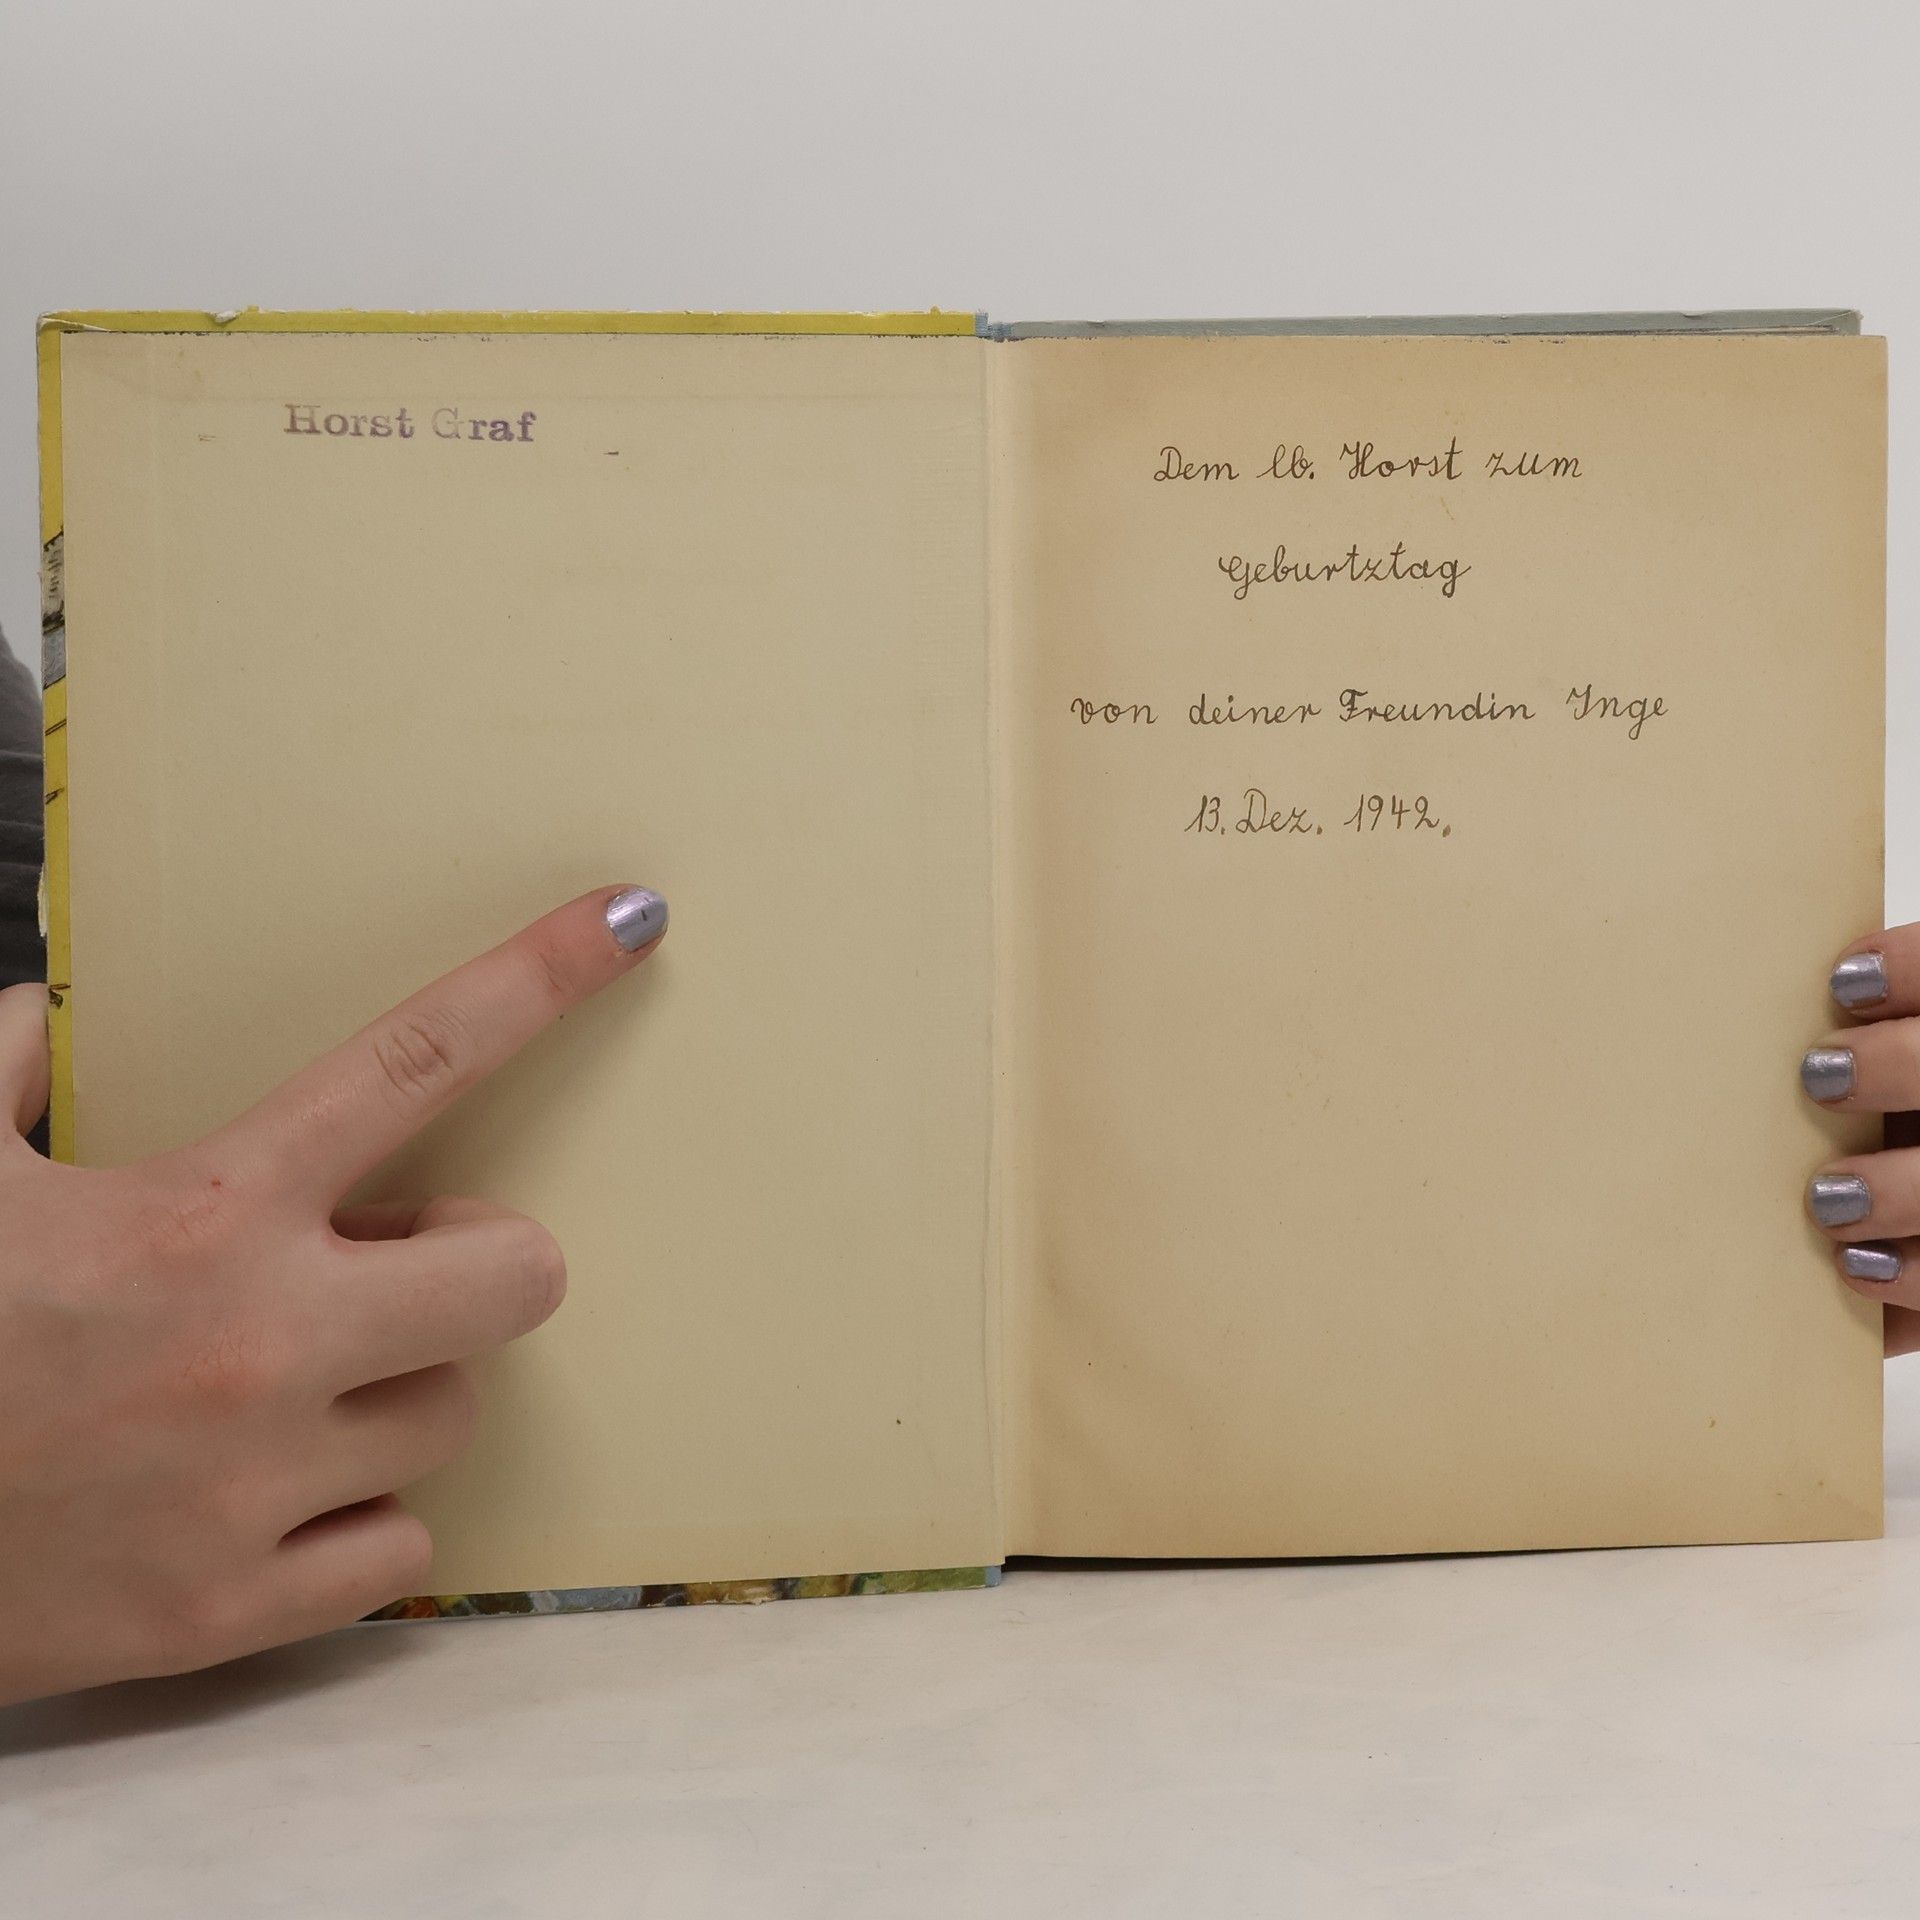 Horst Graf
Dem lb. Horst zum
Geburtztag
von deiner Freundin Inge
13. Dez. 1942.